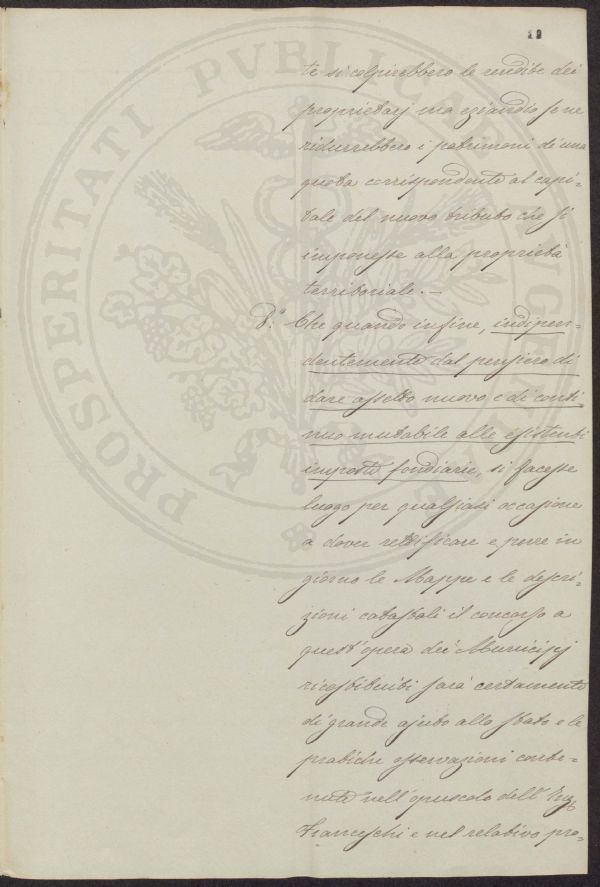 19
te si colpirebbero le rendite dei
proprietarj ma eziandio se ne
ridurrebbero i patrimoni di una
quota corrispondente al capi-
tale del nuovo tributo che si
imponesse alla proprietà
territoriale. —
8.º Che quando infine, indipen-
dentemente dal pensiero di
dare assetto nuovo e di conti
nuo mutabile alle esistenti
imposte fondiarie, si facesse
luogo per qualsiasi occasione
a dover rettificare e porre in
giorno le Mappe e le descri-
zioni catastali il concorso a
quest'opera dei Municipj
ricostituiti sarà certamente
di grande ajuto allo Stato e le
pratiche osservazioni conte-
nute nell'opuscolo dell'Ing
Franceschi e nel relativo pro-
PROSPERITATI PVBLICAE AVGENDAE